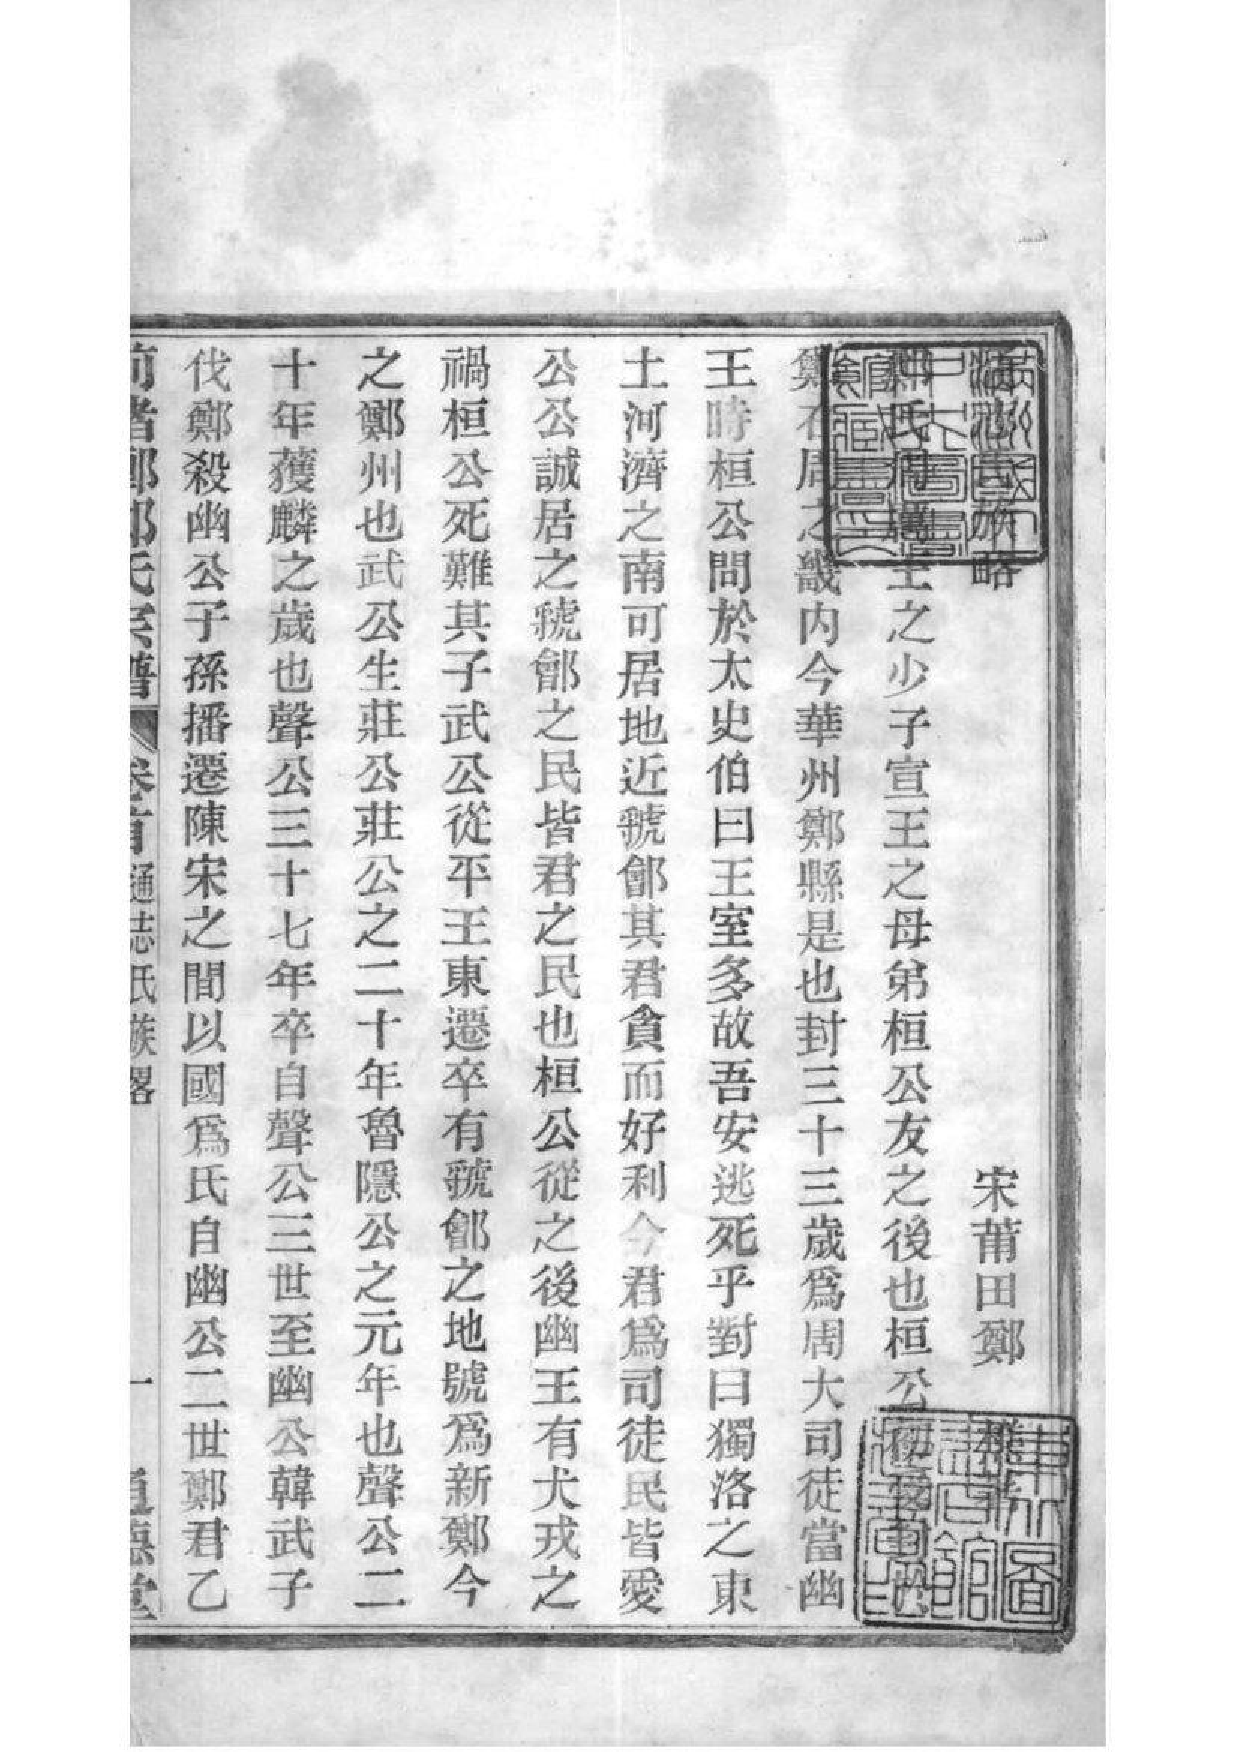 氏族略
宋莆田鄭
鄭氏周厲王之少子宣王之母弟桓公友之後也桓公
鄭在周之畿内今華州鄭縣是也封三十三歲爲周大司徒當幽
王時桓公問於太史伯曰王室多故吾安逃死乎對曰獨洛之東
土河濟之南可居地近虢鄶其君貪而好利今君爲司徒民皆愛
公公誠居之虢鄶之民皆君之民也桓公從之後幽王有犬戎之
禍桓公死難其子武公從平王東遷卒有虢鄶之地號爲新鄭今
之鄭州也武公生莊公莊公之二十年魯隱公之元年也聲公二
十年獲麟之歲也聲公三十七年卒自聲公三世至幽公韓武子
伐鄭殺幽公子孫播遷陳宋之間以國爲氏自幽公二世鄭君乙
鄭氏宗譜 卷首 通誌氏族畧 一 道德堂